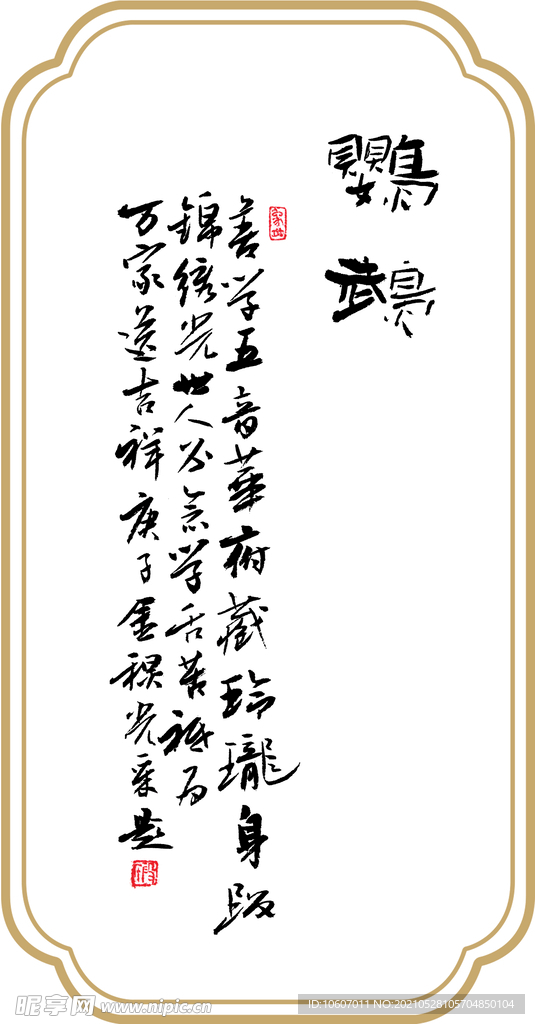 鹦鹉
善学五音華府藏玲瓏身段
錦绣光世人不念学舌苦祇为
万家送吉祥庚子金秋光军题
昵享网 www.nipic.cn
ID:10607011 NO:20210528105704850104